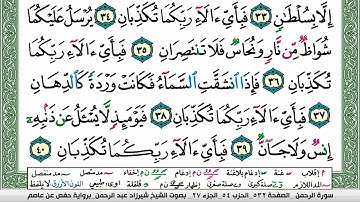 إِلَّا بِسُلْطَٰنٍ ٣٣ فَبِأَيِّ ءَالَآءِ رَبِّكُمَا تُكَذِّبَانِ ٣٤ يُرْسَلُ عَلَيْكُمَا
شُوَاظٌ مِّن نَّارٍ وَنُحَاسٌ فَلَا تَنتَصِرَانِ ٣٥ فَبِأَيِّ ءَالَآءِ رَبِّكُمَا
تُكَذِّبَانِ ٣٦ فَإِذَا ٱنشَقَّتِ ٱلسَّمَآءُ فَكَانَتْ وَرْدَةً كَٱلدِّهَانِ
٣٧ فَبِأَيِّ ءَالَآءِ رَبِّكُمَا تُكَذِّبَانِ ٣٨ فَيَوْمَئِذٍ لَّا يُسْـَٔلُ عَن ذَنۢبِهِۦٓ
إِنسٌ وَلَا جَآنٌّ ٣٩ فَبِأَيِّ ءَالَآءِ رَبِّكُمَا تُكَذِّبَانِ ٤٠
سورة الرحمن - الصفحة ٥٣٢ - الحزب ٥٤ - الجزء ٢٧ - بصوت الشيخ شيرزاد عبد الرحمن - برواية حفص عن عاصم